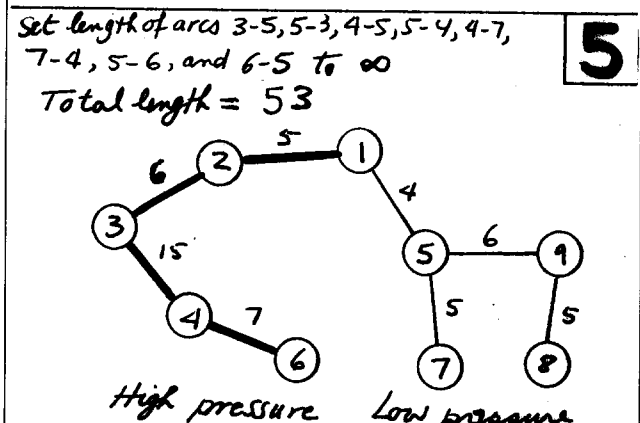 Set length of arcs 3-5, 5-3, 4-5, 5-4, 4-7,
7-4, 5-6, and 6-5 to ∞
5
Total length = 53
5
2
1
6
4
3
15
5
6
9
4
7
5
5
6
7
8
High pressure
Low pressure